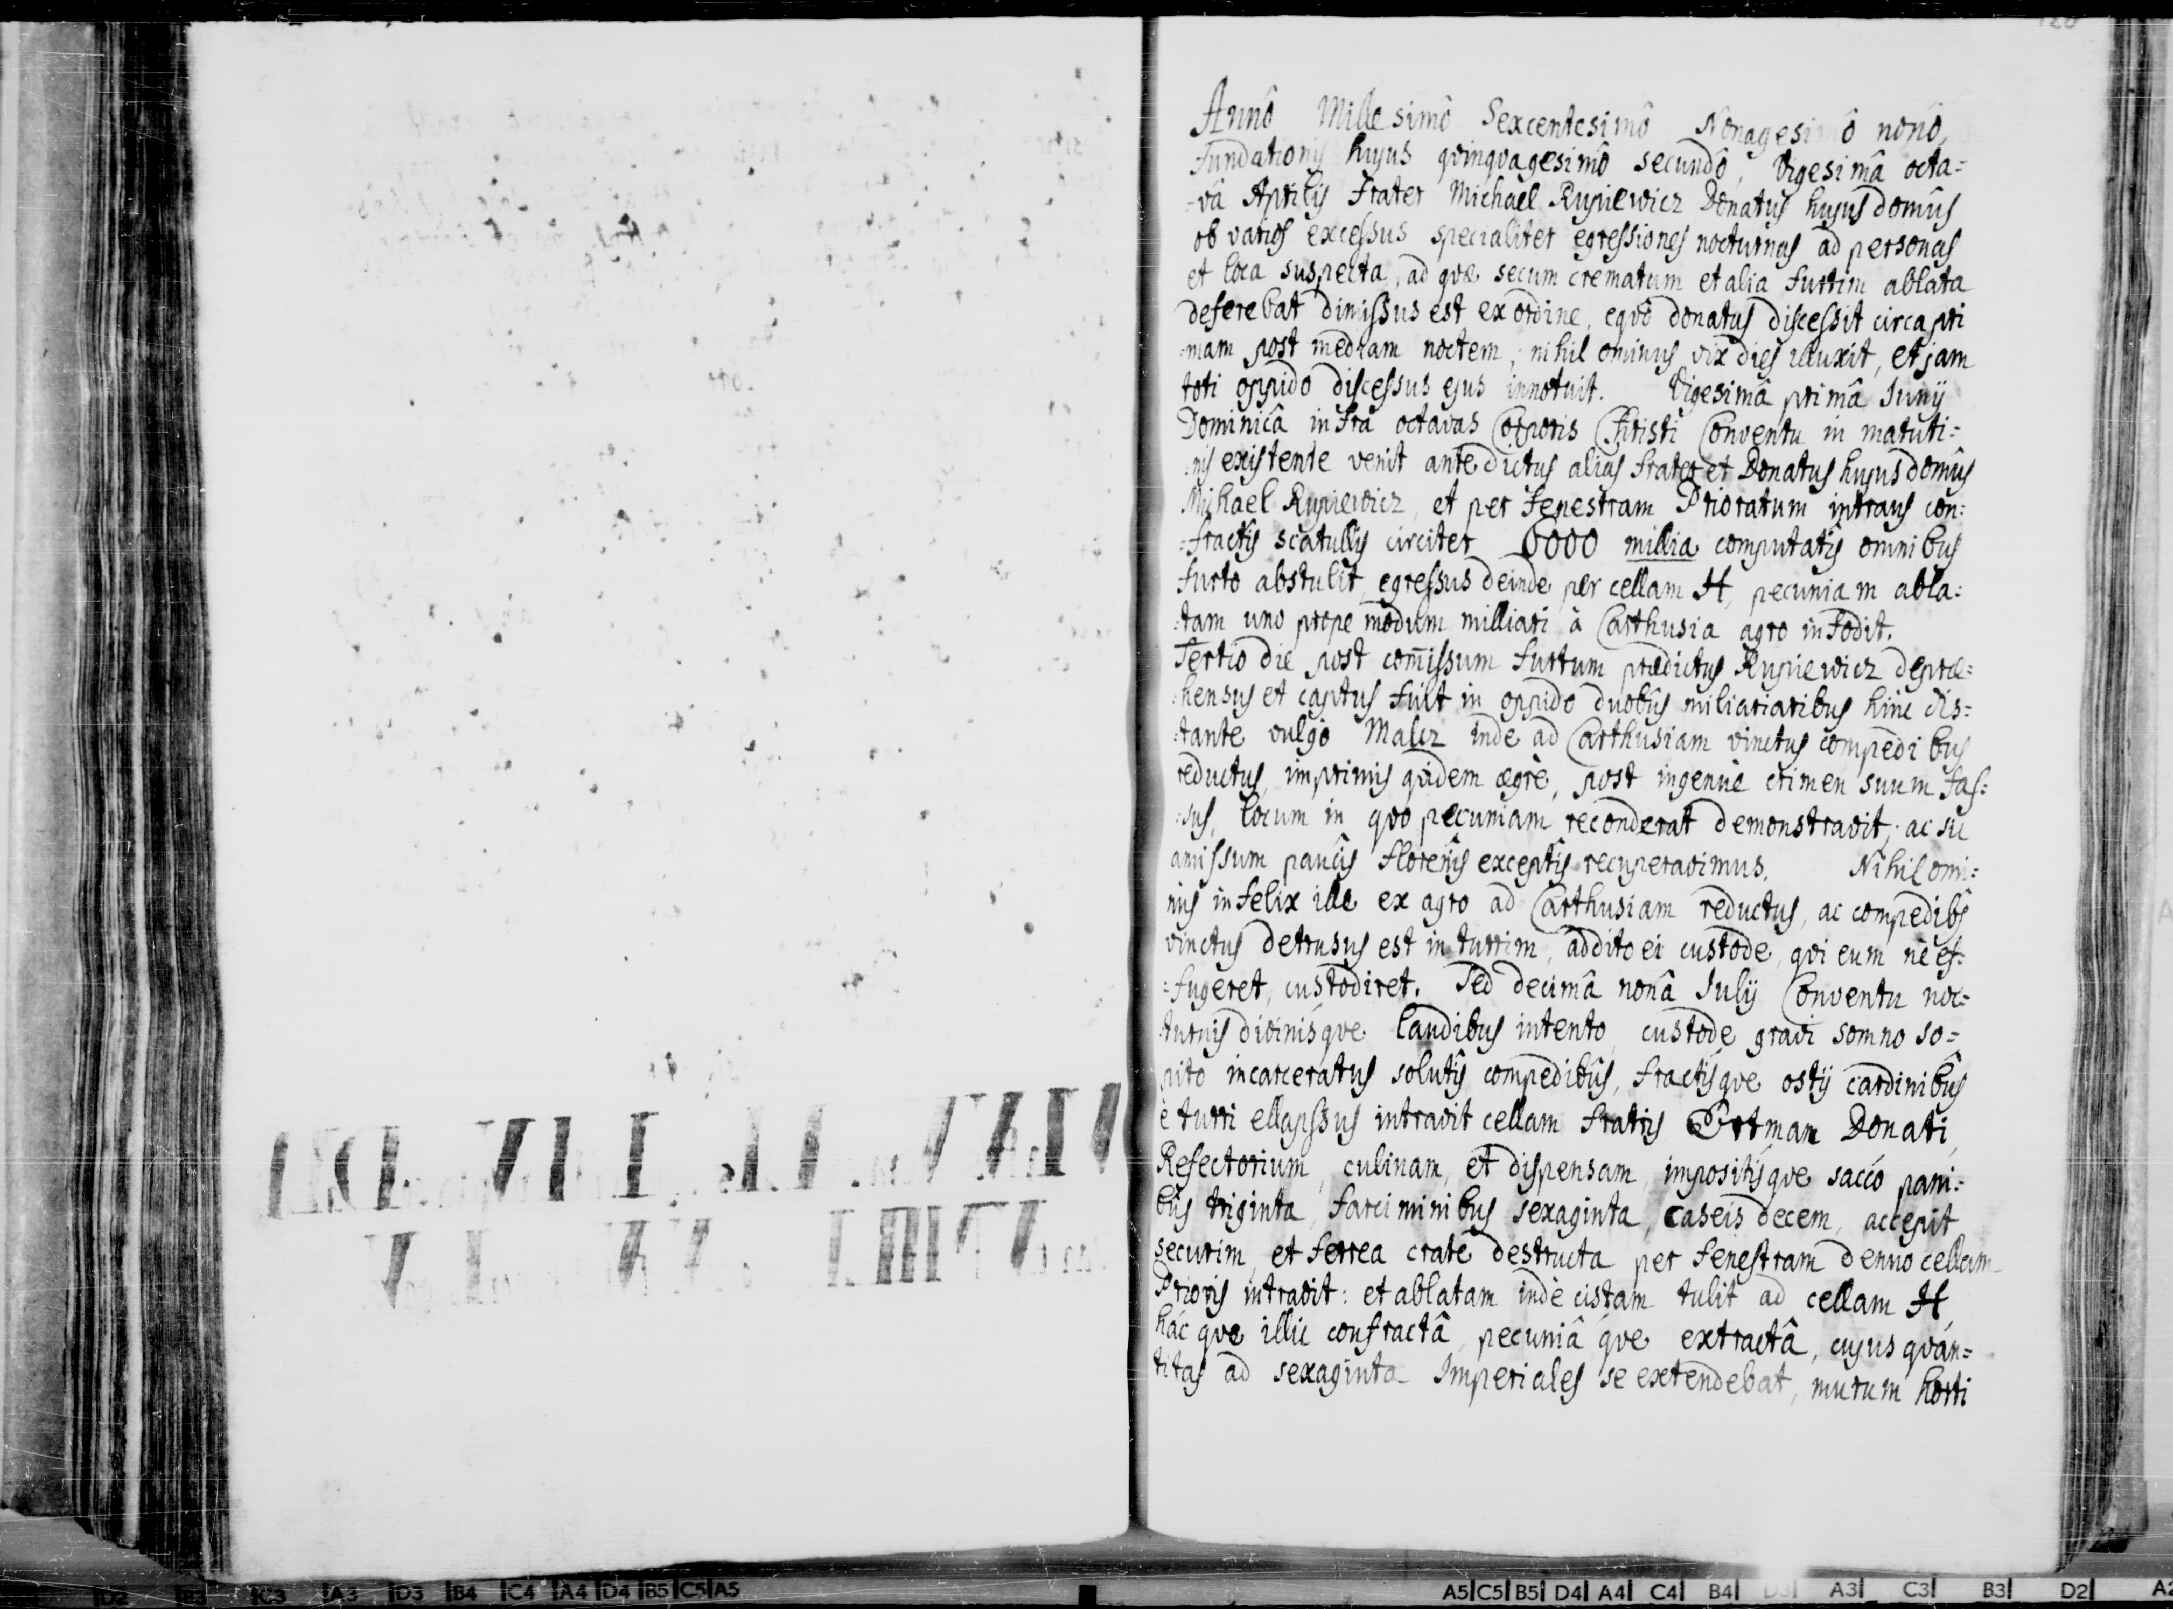 Annô Millesimô Sexcentesimô Nonagesimô nonô,
fundationis hujus qvinqvagesimô secundô, Vigesimâ octa=
-vâ Aprilis Frater Michael Rupiewicz Donatus hujus domûs
ob varios excessus specialiter egressiones nocturnas ad personas
et loca suspecta, ad qvæ secum crematum et alia furtim ablata
deferebat dimissus est ex ordine, eqvô donatus discessit circa pri
-mam post mediam noctem, nihilominus vix dies illuxit, et jam
toti oppido discessus ejus innotuit. Vigesimâ primâ Junij
Dominicâ infra octavas Corporis Christi Conventu in matuti=
:nis existente venit antedictus alias frater et Donatus hujus domûs
Michael Rupiewicz, et per fenestram Prioratum intrans con:
-fractis scatullis circiter 6000 millia computatis omnibus
furto abstulit, egressus deinde per cellam H, pecuniam abla:
-tam uno propemodum milliari à Carthusia agro infodit.
Tertio die post com̃issum furtum prædictus Rupiewicz depræ=
:hensus et captus fuit in oppido duobus miliariaribus hinc dis=
:tante vulgò Malcz inde ad Carthusiam vinctus compedibus
reductus, imprimis qvidem ægrè, post ingenuè crimen suum fas:
-sus, locum in qvo pecuniam reconderat demonstravit, ac sic
amissum paucis florenis exceptis recuperavimus. Nihilomi:
nus infelix ille ex agro ad Carthusiam reductus, ac compedibs
vinctus detrusus est in turrim, addito ei custode, qvi eum nè ef:
=fugeret, custodiret. Sed decimâ nonâ Julij Conventu noc=
turnis divinisqve laudibus intento, custode gravi somno so=
pito incarceratus solutis compedibûs, fractisqve ostij cardinibûs
è turri ellapssus intravit cellam fratris Ortman Donati,
Refectorium, culinam, et dispensam, impositisqve sacco pani=
bus triginta, farciminibus sexaginta, caseis decem, accepit
securim, et ferrea crate destructa per fenestram denuo cellam
Prioris intravit: et ablatam inde cistam tulit ad cellam H
hâcqve illic confractâ, pecuniâqve extractâ, cujus qvan=
titas ad sexaginta Imperiales se extendebat, murum horti